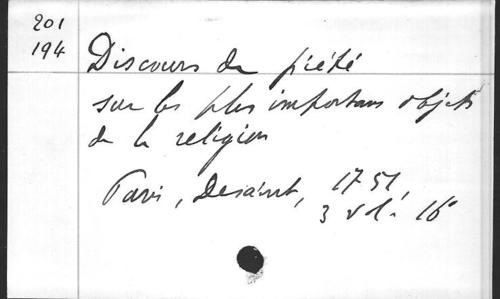 201
194
Discours de piété
sur les plus importans objets
de la religion
Paris, Desaint, 1751,
3 vol. 16°